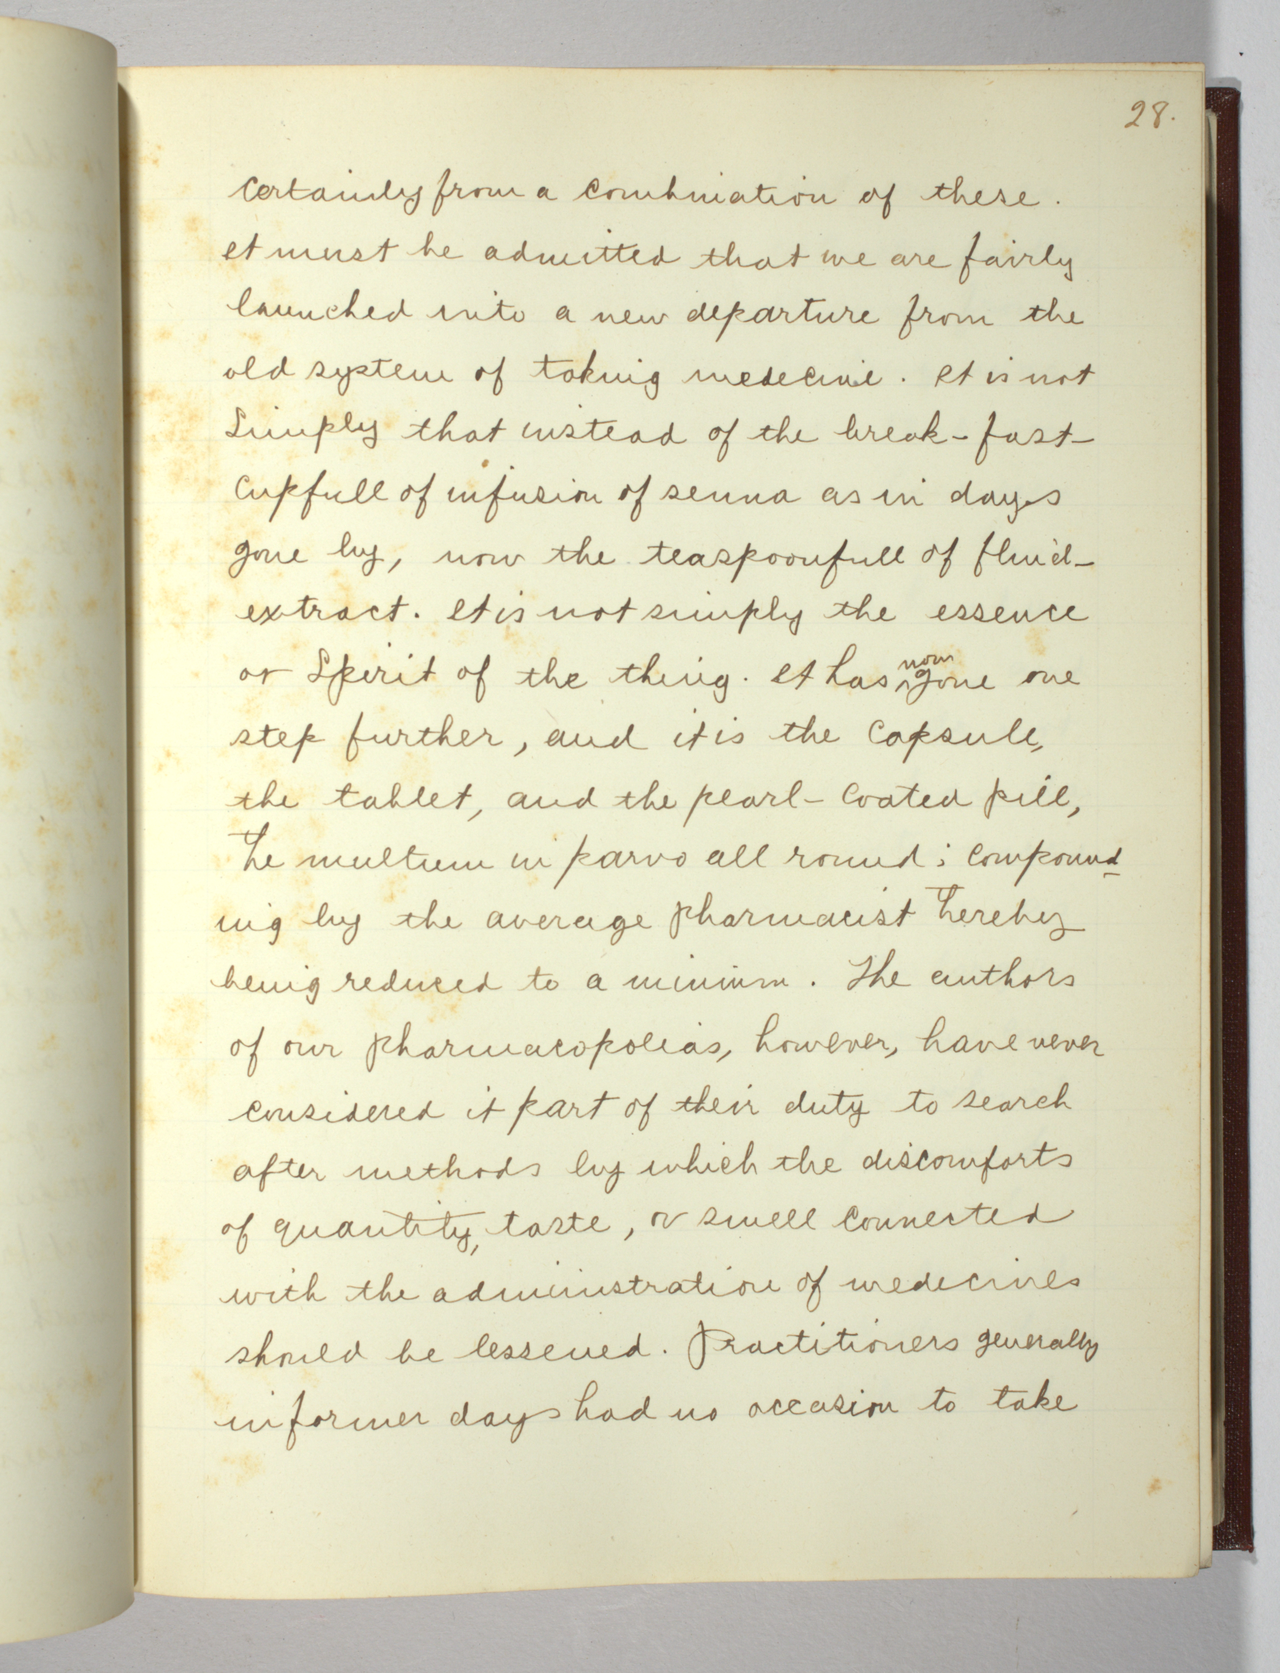 28.
Certainly from a combination of these.
It must be admitted that we are fairly
launched into a new departure from the
old system of taking medecine. It is not
Simply that instead of the break-fast-
cupfull of infusion of senna as in days
gone by, now the teaspoonfull of fluid-
extract. It is not simply the essence
or Spirit of the thing. It has now gone one
step further, and it is the Capsule,
the tablet, and the pearl-coated pill,
the multum in parvo all round; Compound-
ing by the average pharmacist thereby
being reduced to a minimm. The authors
of our pharmacopoleias, however, have never
considered it part of their duty to search
after methods by which the discomforts
of quantity, taste, or smell connected
with the administration of medecines
should be lessened. Practitioners generally
in former days had no occasion to take